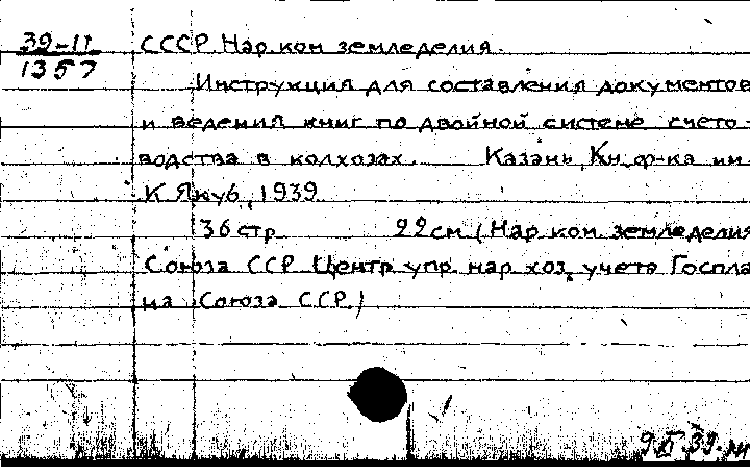 39-11
1357
СССР Нар. ком. земледелия.
Инструкция для составления документов
и ведения книг по двойной системе счето-
водства в колхозах. Казань, Кн. ф-ка им.
К. Якуб, 1939
36 стр. 22 см. (Нар. ком. земледелия
Союза ССР. Центр. упр. нар. хоз. учета Госпла
на Союза ССР)